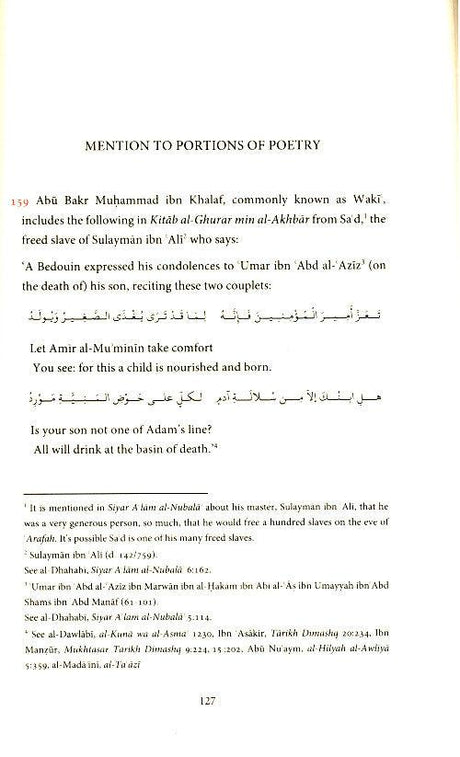 MENTION TO PORTIONS OF POETRY
159 Abū Bakr Muḥammad ibn Khalaf, commonly known as Wakīʿ,
includes the following in Kitāb al-Ghurar min al-Akhbār from Saʿd,¹ the
freed slave of Sulaymān ibn ʿAlī² who says:
‘A Bedouin expressed his condolences to ʿUmar ibn ʿAbd al-ʿAzīz³ (on
the death of) his son, reciting these two couplets:
تَعَزَّ أَمِيرَ الْمُؤْمِنِينَ فَإِنَّهُ لِمَا قَدْ تَرَى يُغْذَى الصَّغِيرُ وَيُولَدُ
Let Amir al-Muʾminīn take comfort
You see: for this a child is nourished and born.
هَلِ ابْنُكَ إِلاَّ مِنْ سُلَالَةِ آدَمٍ لِكُلٍّ عَلَى حَوْضِ الْمَنِيَّةِ مَوْرِدُ
Is your son not one of Adam's line?
All will drink at the basin of death.’⁴
¹ It is mentioned in Siyar Aʿlām al-Nubalāʾ about his master, Sulaymān ibn ʿAlī, that he
was a very generous person, so much, that he would free a hundred slaves on the eve of
ʿArafah. It's possible Saʿd is one of his many freed slaves.
² Sulaymān ibn ʿAlī (d. 142/759).
See al-Dhahabī, Siyar Aʿlām al-Nubalāʾ 6:162.
³ ʿUmar ibn ʿAbd al-ʿAzīz ibn Marwān ibn al-Ḥakam ibn Abī al-ʿĀs ibn Umayyah ibn ʿAbd
Shams ibn ʿAbd Manāf (61–101).
See al-Dhahabī, Siyar Aʿlam al-Nubalāʾ 5:114.
⁴ See al-Dawlābī, al-Kunā wa al-Asmāʾ 1230, Ibn ʿAsākir, Tārīkh Dimashq 20:234, Ibn
Manẓūr, Mukhtasar Tārīkh Dimashq 9:224, 15:202, Abū Nuʿaym, al-Ḥilyah al-Awliyā
5:359, al-Madāʾinī, al-Taʿāzī
127